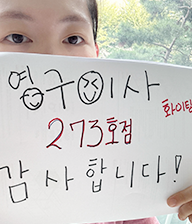 영구이사
화이팅
273호점
감사합니다!